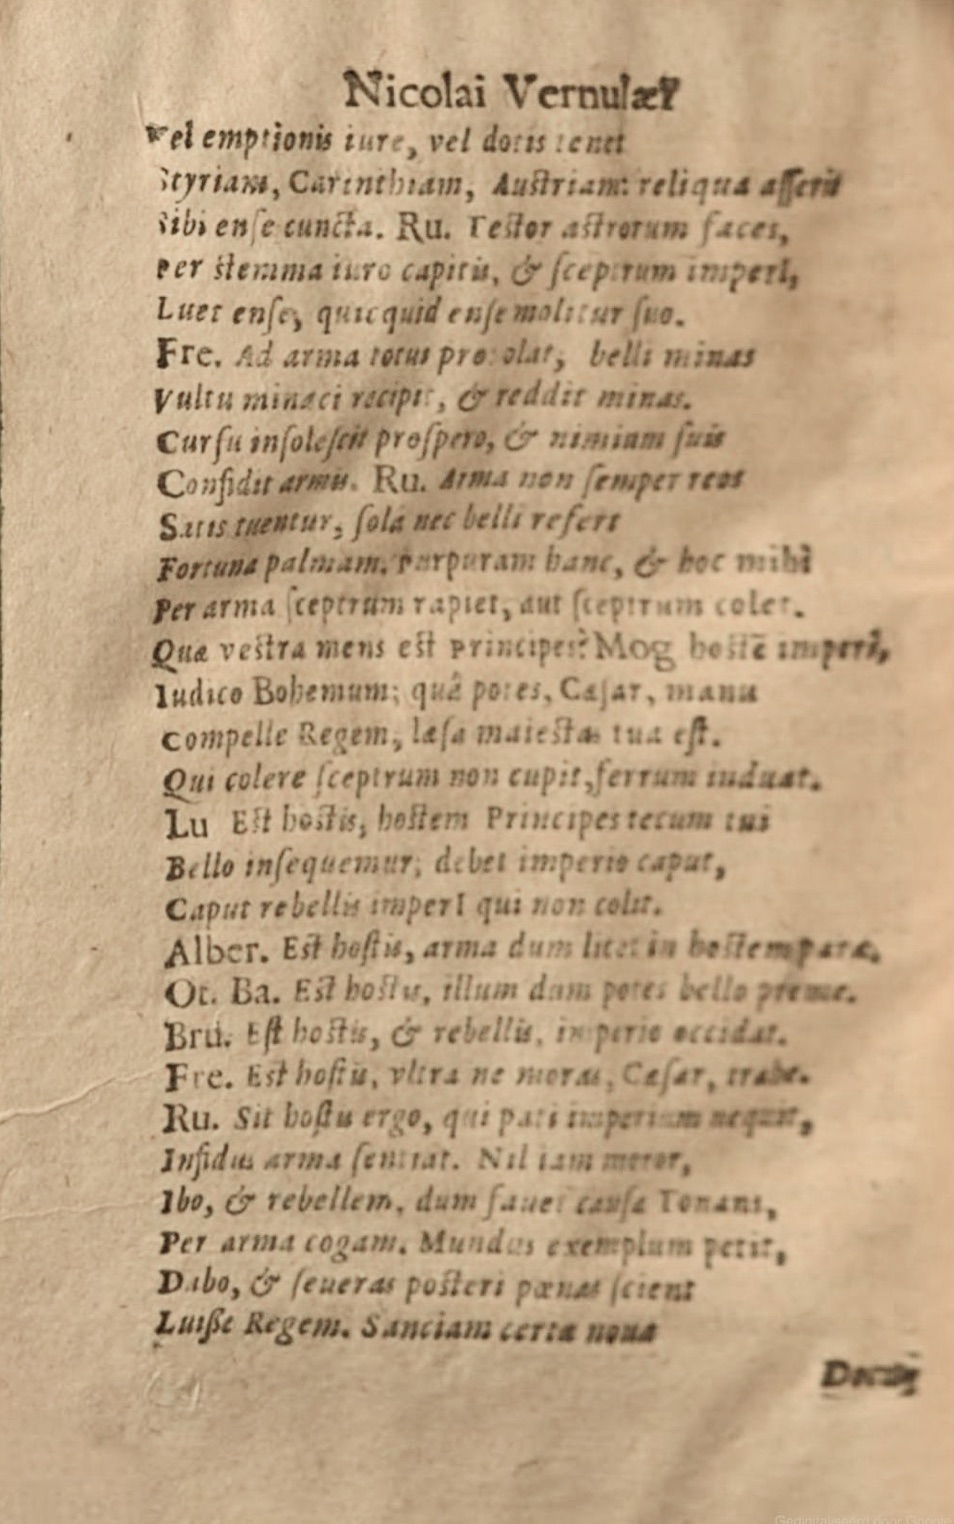 Nicolai Vernulæi
Vel emptionis iure, vel dotis tenet
Styriam, Carinthiam, Austriam: reliqua asserit
Sibi ense cuncta. Ru. Testor astrorum faces,
Per stemma iuro capitis, & sceptrum imperI,
Luet ense, quicquid ense molitur suo.
Fre. Ad arma totus provolat, belli minas
Vultu minaci recipit, & reddit minas.
Cursu insolescit prospero, & nimium suis
Confidit armis. Ru. Arma non semper reos
Satis tuentur, sola nec belli refert
Fortuna palmam. Purpuram hanc, & hoc mihi
Per arma sceptrum rapiet, aut sceptrum colet.
Quæ vestra mens est Principes? Mog hostē imperI,
Iudico Bohemum; quâ potes, Cæsar, manu
Compelle Regem, læsa maiestas tua est.
Qui colere sceptrum non cupit, ferrum induat.
Lu Est hostis, hostem Principes tecum tui
Bello insequemur; debet imperio caput,
Caput rebellis imperI qui non colit.
Alber. Est hostis, arma dum licet in hostem para.
Ot. Ba. Est hostis, illum dum potes bello preme.
Bru. Est hostis, & rebellis, imperio occidat.
Fre. Est hostis, vltra ne moras, Cæsar, trahe.
Ru. Sit hostis ergo, qui pati imperium nequit,
Infidus arma sentiat. Nil iam moror,
Ibo, & rebellem, dum fauet causa Tonans,
Per arma cogam. Mundus exemplum petit,
Dabo, & seueras posteri pœnas scient
Luisse Regem. Sanciam certa noua